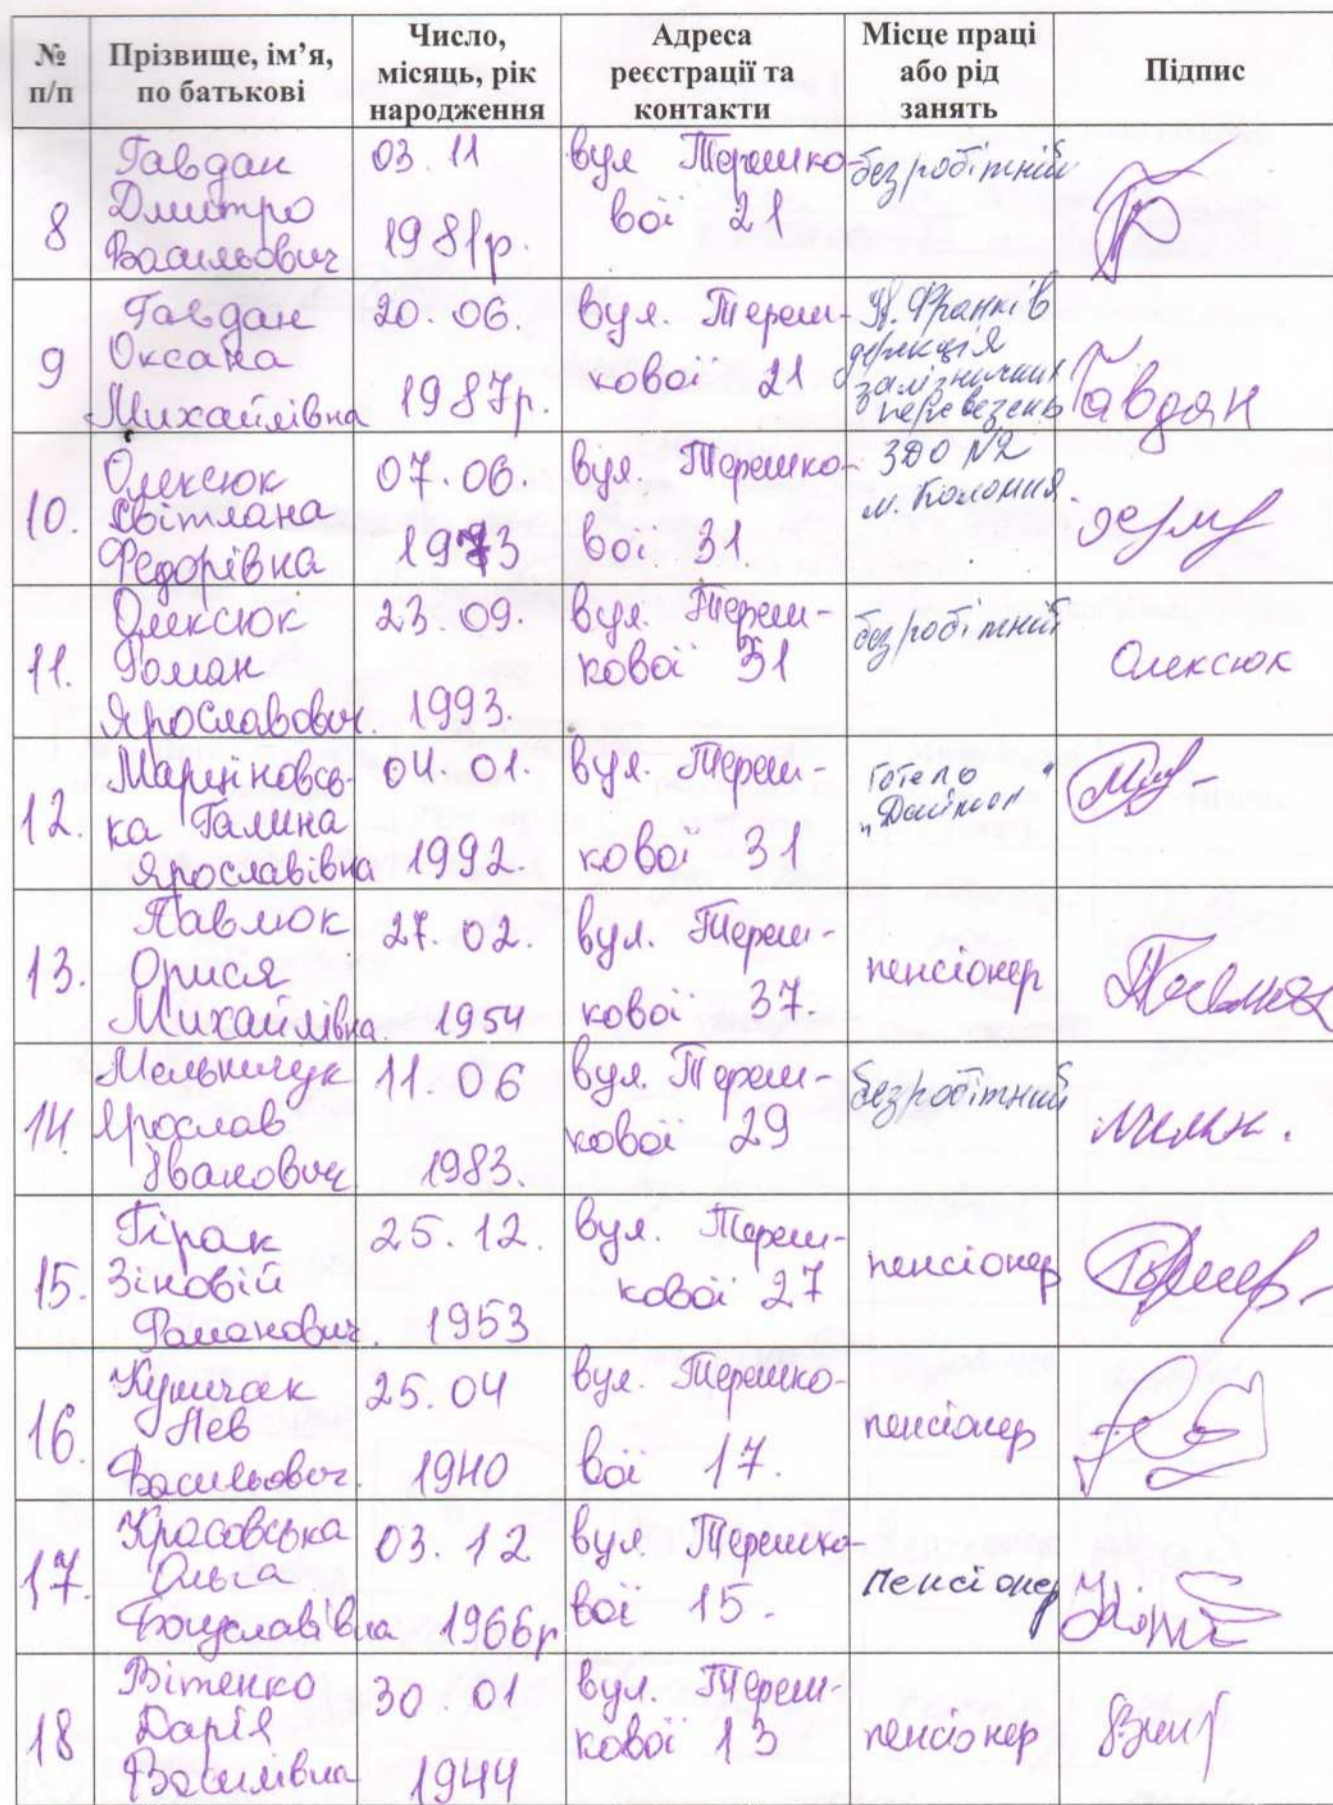 № п/п | Прізвище, ім’я, по батькові | Число, місяць, рік народження | Адреса реєстрації та контакти | Місце праці або рід занять | Підпис
8 | Гавдан Дмитро Васильович | 03. 11 1981р. | вул Терешко- вої 21 | безробітний
9 | Гавдан Оксана Михайлівна | 20. 06. 1987р. | вул. Тереш- кової 21 | Ів. Франків дирекція залізничних перевезень | Гавдан
10. | Олексюк Світлана Федорівна | 07. 06. 1973 | вул. Терешко- вої 31 | ЗДО №2 м. Коломия.
11. | Олексюк Роман Ярославович. | 23. 09. 1993. | вул. Тереш- кової 31 | безробітний | Олексюк
12. | Марціновсь- ка Галина Ярославівна | 04. 01. 1992. | вул. Тереш- кової 31 | Готель
13. | Павлюк Орися Михайлівна. | 27. 02. 1954 | вул. Тереш- кової 37. | пенсіонер | Павлюк
14. | Мельничук Ярослав Іванович | 11. 06 1983. | вул. Тереш- кової 29 | безробітний
15. | Гірак Зіновій Романович. | 25. 12. 1953 | вул. Тереш- кової 27 | пенсіонер
16. | Кушчак Лев Васильович. | 25. 04 1940 | вул. Терешко- вої 17. | пенсіонер
17. | Красовська Ольга Богуславівна | 03. 12 1966р | вул. Терешко- вої 15. | пенсіонер
18 | Вітенко Дарія Василівна | 30. 01 1944 | вул. Тереш- кової 13 | пенсіонер